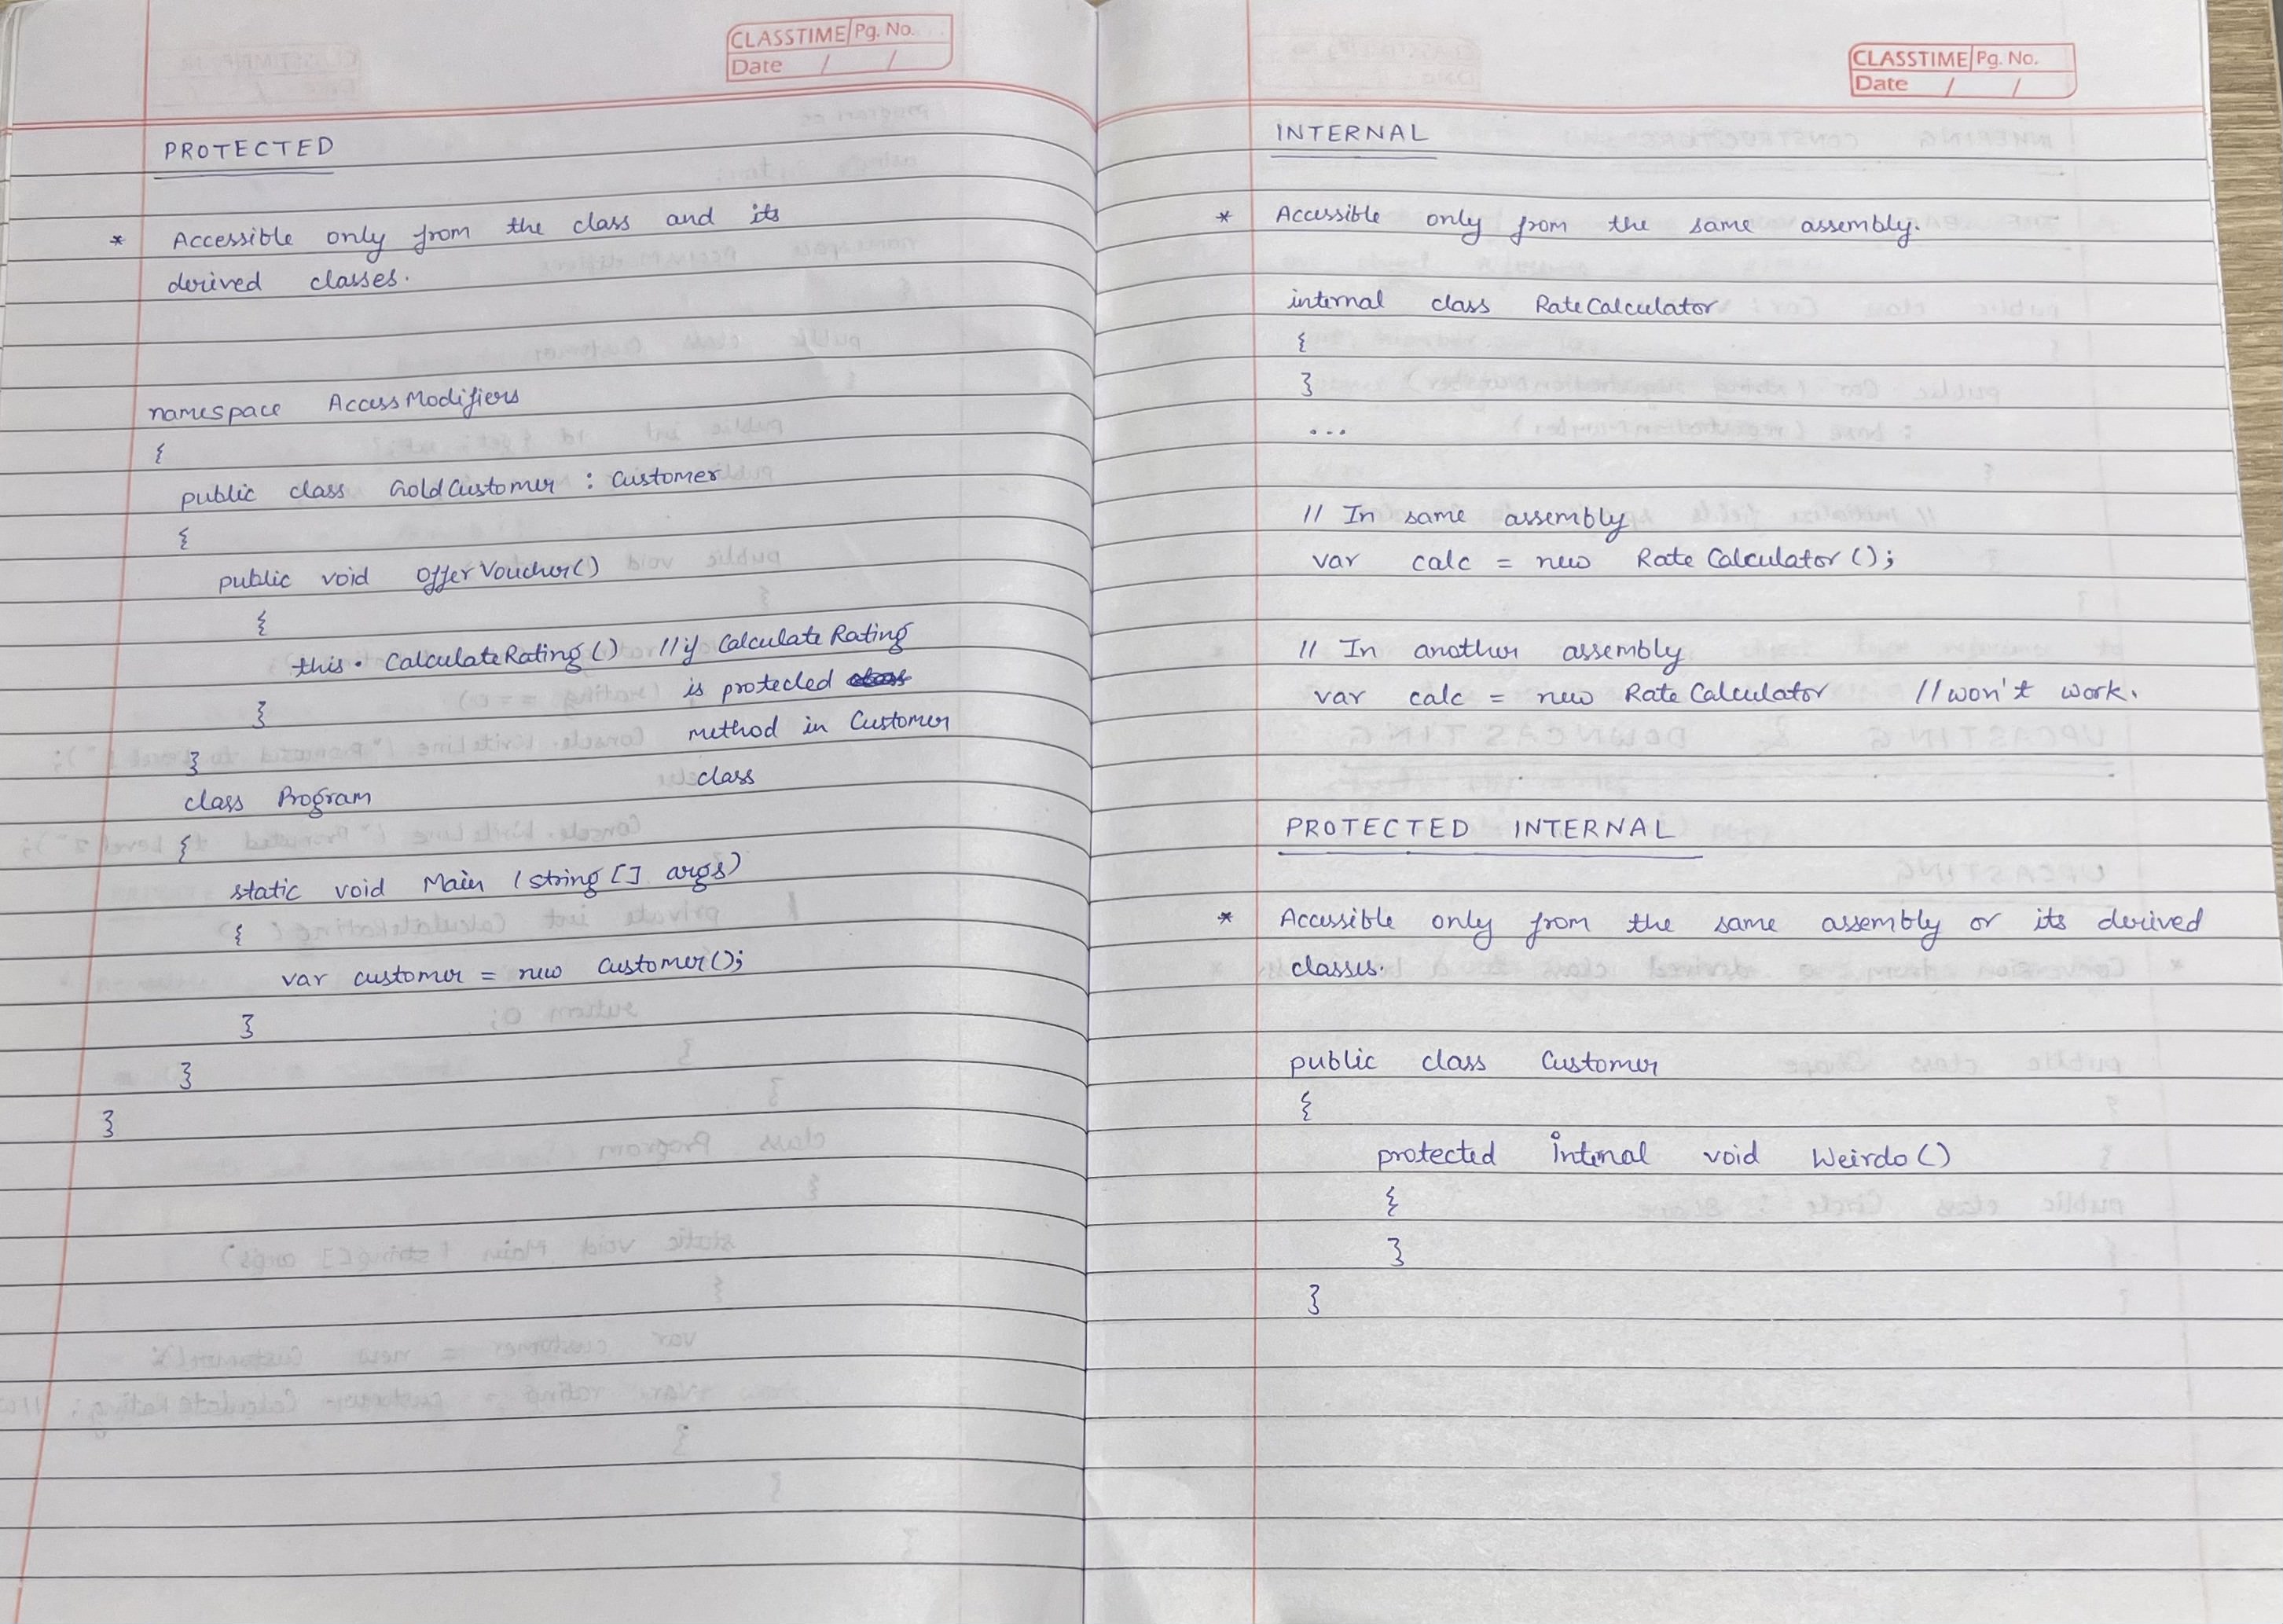 CLASSTIME Pg. No.
Date / /
PROTECTED
* Accessible only from the class and its
derived classes.
namespace AccessModifiers
{
public class GoldCustomer : Customer
{
public void OfferVoucher()
{
this.CalculateRating() //if CalculateRating
is protected
}
method in Customer
}
class
class Program
{
static void Main (string[] args)
{
var customer = new Customer();
}
}
}
CLASSTIME Pg. No.
Date / /
INTERNAL
* Accessible only from the same assembly.
internal class RateCalculator
{
}
...
// In same assembly
var calc = new RateCalculator();
// In another assembly
var calc = new RateCalculator //won't work.
PROTECTED INTERNAL
* Accessible only from the same assembly or its derived
classes.
public class Customer
{
protected internal void Weirdo()
{
}
}